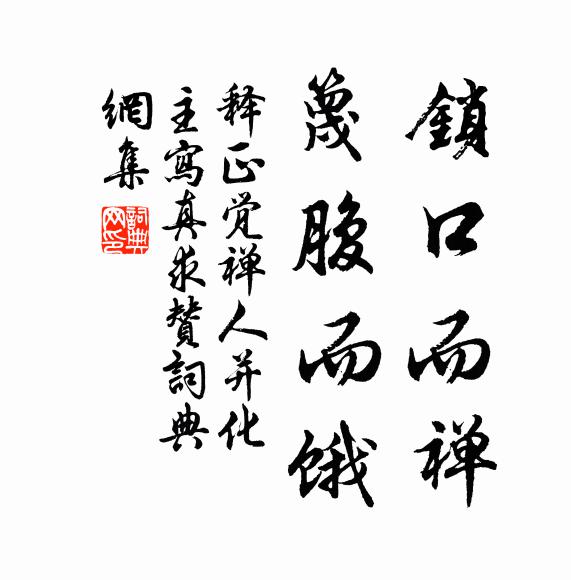 鎖口而禅
蔑腹而饿
释正觉禅人并化
主寫真求贊詞典
網集
詞典
网印